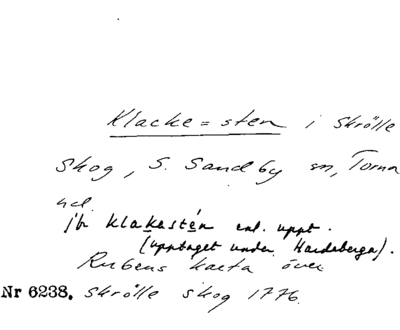 Klacke=sten i Skrölle
Skog, S. Sandby sn, Torna
hd.
jfr klakastén enl. uppt.
(upptaget under Hardeberga).
Rubens karta över
Nr 6238. Skrölle skog 1776.